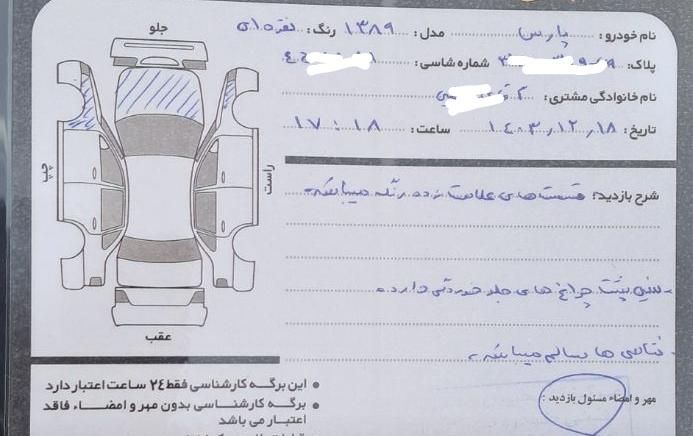 جلو
چپ
راست
عقب
نام خودرو: پارس مدل: ۱۳۸۹ رنگ: نقره ای
پلاک: شماره شاسی:
نام خانوادگی مشتری:
تاریخ: ۱۴۰۳/۱۲/۱۸ ساعت: ۱۷:۱۸
شرح بازدید: قسمت های علامت زده رنگ میباشد
- سینی پشت چراغ های جلو خوردگی دارد
- شاسی ها سالم میباشد
مهر و امضاء مسئول بازدید:
• این برگه کارشناسی فقط ۲۴ ساعت اعتبار دارد
• برگه کارشناسی بدون مهر و امضاء فاقد
اعتبار می باشد